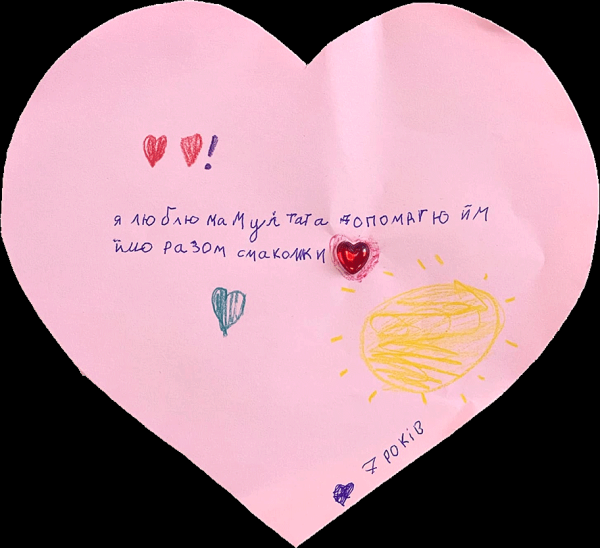 !
я люблю маму й тата допомагю їм
їмо разом смаколики
7 років